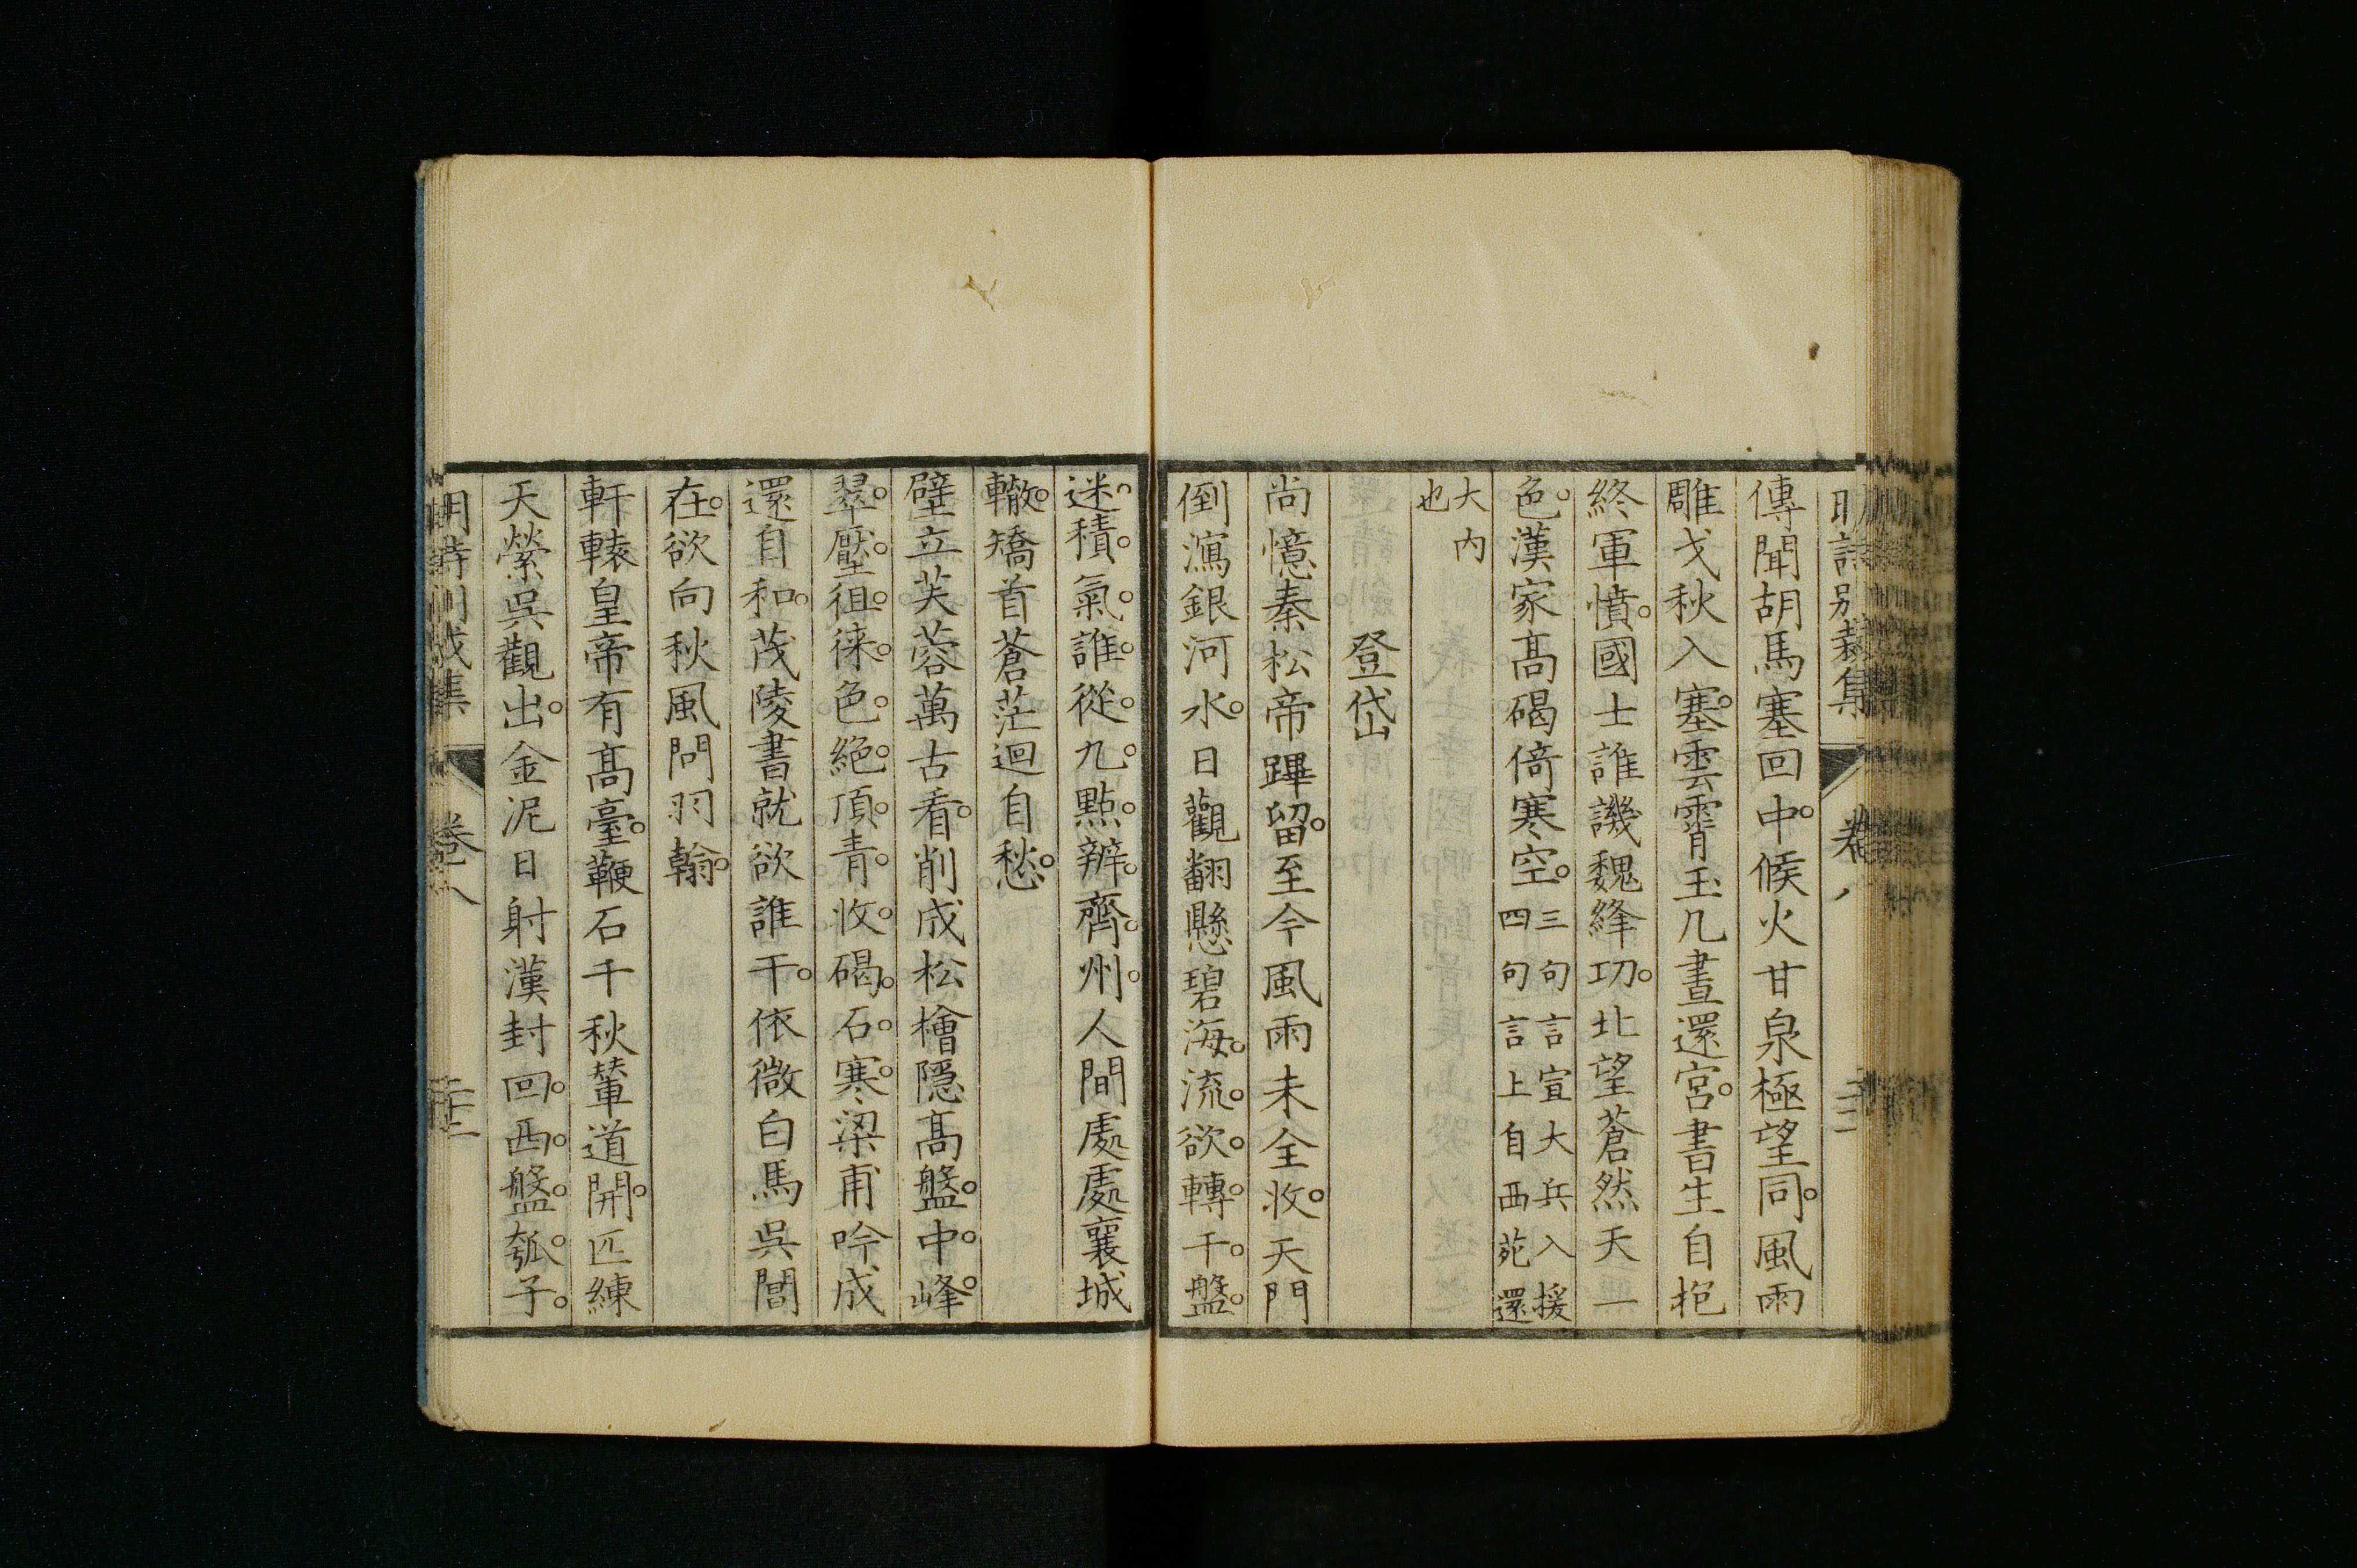 明詩別裁集 卷八
傳聞胡馬塞回中候火甘泉極望同風雨
雕戈秋入塞雲霄玉几晝還宮書生自抱
終軍憤國士誰譏魏絳功北望蒼然天一
色漢家高碣倚寒空三句言宣大兵入援四句言上自西苑還
大内也
登岱
尚憶秦松帝蹕留至今風雨未全收天門
倒瀉銀河水日觀翻懸碧海流欲轉千盤
迷積氣誰從九點辨齊州人間處處襄城
轍矯首蒼茫迴自愁
壁立芙蓉萬古看削成松檜隱高盤中峰
翠壓徂徠色絕頂青收碣石寒梁甫吟成
還自和茂陵書就欲誰干依微白馬吳閶
在欲向秋風問羽翰
軒轅皇帝有高臺鞭石千秋輦道開匹練
天縈吳觀出金泥日射漢封回西盤瓠子
明詩別裁集 卷八